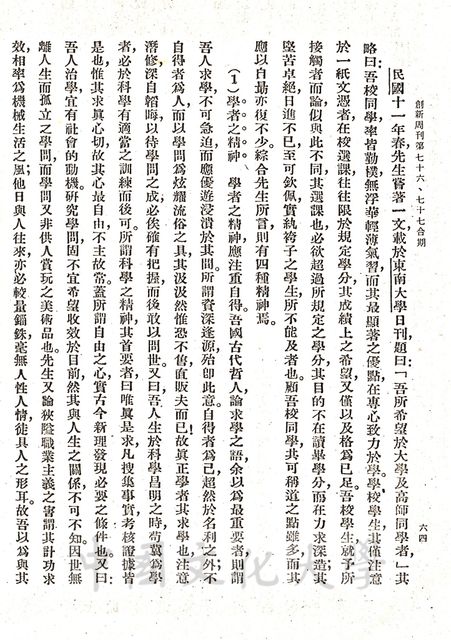 創新周刊第七十六、七十七合期
六四
民國十一年春先生嘗著一文載於東南大學日刊題曰：「吾所希望於大學及高師同學者，」其
略曰：吾校同學率皆勤樸無浮華輕薄氣習，而其最顯著之優點在專心致力於學。學校學生其僅注意
於一紙文憑者，在校選課往往限於規定學分，其成績上之希望，又僅以及格為已足。吾校學生就予所
接觸者而論，似與此不同，其選課也，必欲超過所規定之學分，其目的不在讀畢學分，而在力求深造；其
堅苦卓絕，日進不已，至可欽佩，實紈袴子之學生所不能及者也。顧吾校同學其可稱道之點雖多，而其
應以自勗亦復不少。綜合先生所言，則有四種精神焉。
（1）學者之精神　學者之精神，應注重自得。吾國古代哲人論求學之語，余以為最重要者，則謂
吾人求學，不可急迫，而應優遊浸漬於其間，所謂資深逢源，殆即此意。自得者為己，超然於名利之外，不
自得者為人，而以學問為炫耀流俗之具，其汲汲然惟恐不售，直販夫而已！故真正學者，其求學也，注意
潛修深自韜晦，以待學問之成，必俟確有把握，而後敢以問世。又曰：吾人生於科學昌明之時，苟冀為學
者，必於科學有適當之訓練而後可。所謂科學之精神，其首要者，曰唯真是求，凡搜集事實，考核證據皆
是也。惟其求真心切，故其心最自由，不主故常。蓋所謂自由之心，實古今新理發現必要之條件也。又曰：
吾人治學，宜有社會的動機。研究學問，固不宜希望收效於目前，然其與人生之關係，不可不知。因世無
離人生而孤立之學問，而學問又非供人賞玩之美術品也。先生又論狹隘職業主義之害，謂其計功求
效相率為機械生活之風；他日與人往來，亦必較量錙銖，毫無人性人情，徒具人之形耳。故吾以為與其
中國文化大學